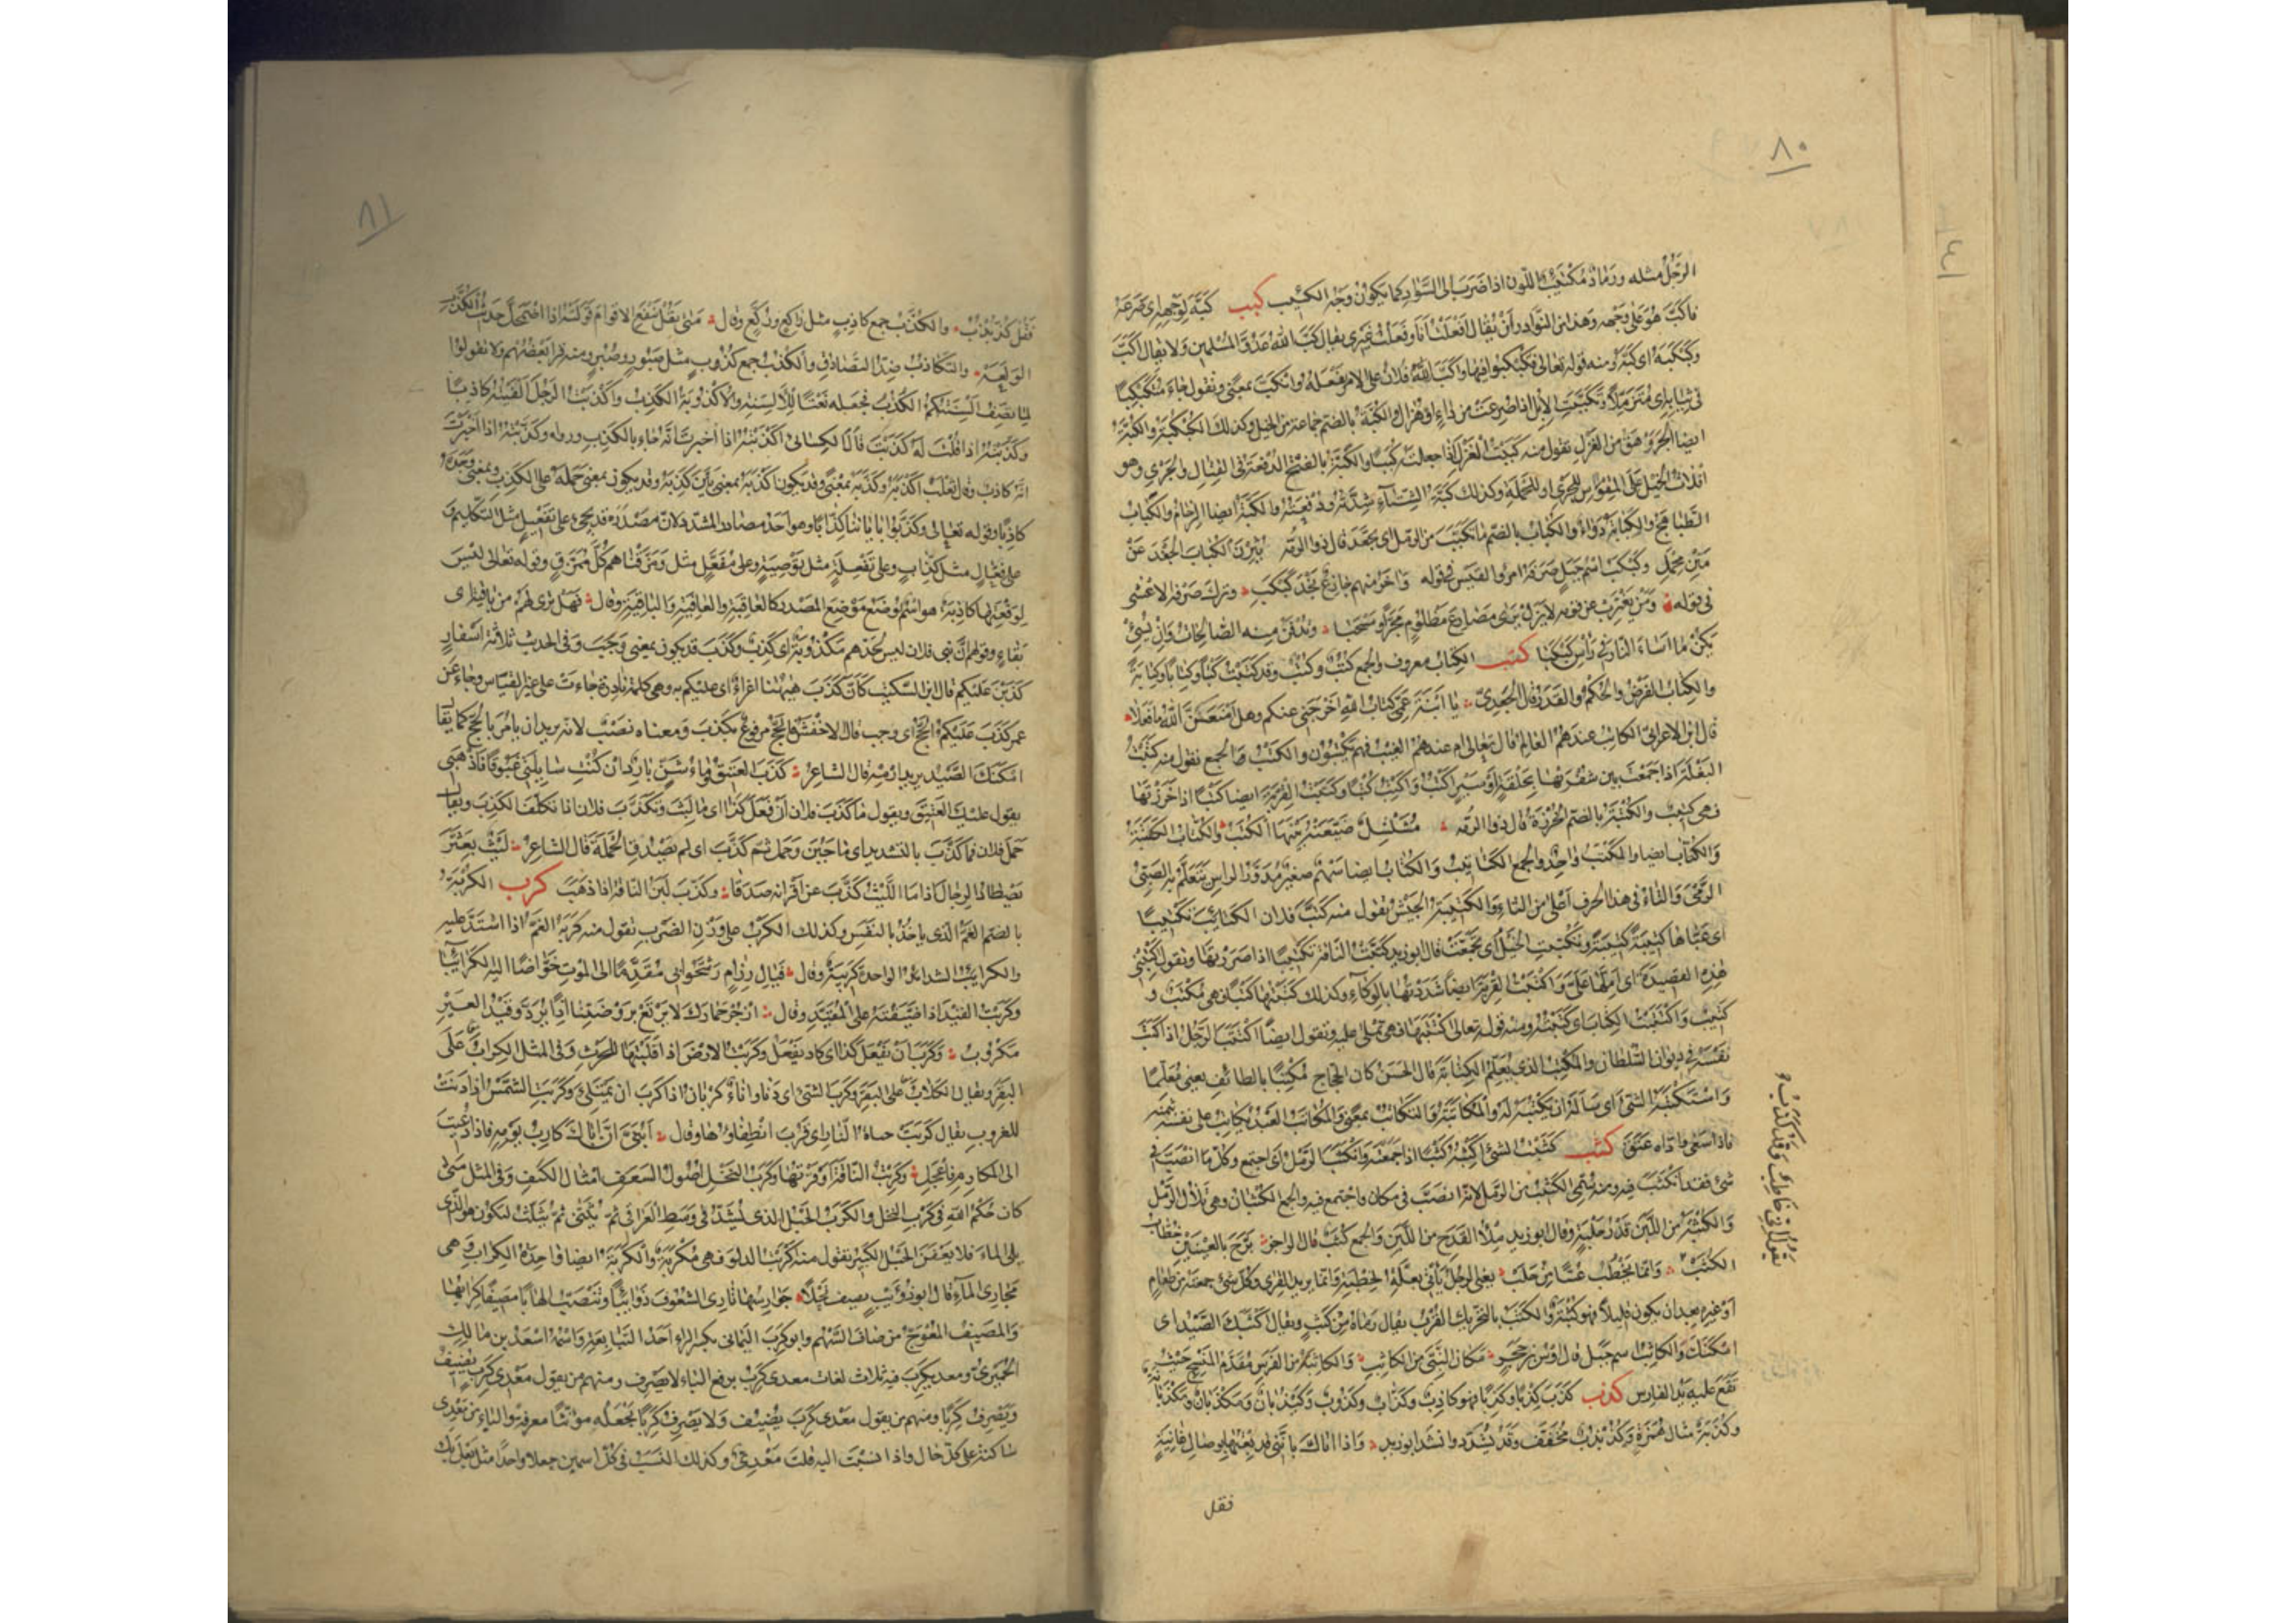 ٨٠
الرَّجُلُ مثله ورَمادٌ مُكْتَئِبُ اللّون اذا ضَرَبَ الى السَّوادِ كما يكون وَجْهُ الكئيب كبب كَبَّهُ لِوَجْهِهِ اى صَرَعَهُ
فاكَبَّ هُوَ على وَجْهِه وهذا من النوادر أن يُقال أفْعَلْتُ أنا وفَعَلْتُ غَيْرى يقال كَبَّ اللهُ عَدُوَّ المُسْلِمين ولا يقال أكَبَّ
وكَبْكَبَهُ اى كَبَّهُ ومنه قوله تعالى فَكُبْكِبُوا فيها واكَبَّ فلان على الامر يَفْعَلُهُ وانْكَبَّ بمعنًى وتقول جاءَ مُتَكَبْكِبًا
فى ثيابه اى مُتَزَمِّلًا وتَكَبَّبَتِ الابل اذا صُرِعَتْ من داءٍ او هُزال والكُبَّةُ بالضم جماعة من الخيل وكذلك الكُبْكُبَةُ والكُبَّةُ
ايضا الجَرَوْهَقُ من الغَزْلِ تقول منه كَبَبْتُ الغَزْلَ اذا جعلته كُبَبًا والكَبَّةُ بالفتح الدُفْعَةُ فى القِتال والجَرْى وهو
افلات الخيل على المِقْوَس للجَرْى او للحَمْلَة وكذلك كَبَّةُ الشتاءِ شِدَّتُهُ ودُفْعَتُهُ والكَبَّةُ ايضا الزحام والكَباب
الطَّباهِجُ والكُبابَةُ دَواءٌ والكُبابُ بالضم ما تَكَبَّبَ من الرمل اى تجَعَّدَ قال ذو الرمّة يُثِرْنَ الكُبابَ الجَعْدَ عَنْ
مَتْنِ مِحْمَلِ وكَبْكَبٌ اسم جَبَلٍ صَرَفَهُ امرؤ القيس فى قوله وآخَرُ منهم جازِعٌ نَجْدَ كَبْكَبِ وترك صَرْفَهُ الاعشى
فى قوله ومَنْ يَغْتَرِبْ عن قومه لا يَزَلْ يَرى مَصارِعَ مظلومٍ مَجَرًّا ومَسْحَبا وتُدْفَنُ منه الصّالحاتُ وإنْ يُسِئْ
يَكُنْ ما أساءَ النارَ فى رَأسِ كَبْكَبا كتب الكِتابُ معروف والجمع كُتُبٌ وكُتْبٌ وقد كَتَبْتُ كَتْبًا وكِتابًا وكِتابَةً
والكِتابُ الفَرْضُ والحُكْمُ والقَدَرُ قال الجَعْدِىّ يا ابْنَةَ عَمِّى كِتابُ اللهِ أخْرَجَنى عنكم وهل أمْنَعَنَّ اللهَ ما فَعَلا
قال ابن الاعرابى الكاتِبُ عندهم العالِمُ قال تعالى ام عندهم الغيب فهم يكتبون والكَتْبُ الجمع تقول منه كَتَبْتُ
البَغْلَةَ اذا جَمَعْتَ بين شُفْرَيْها بحَلْقَةٍ او سَيْرٍ أكْتُبُ وأكْتِبُ كَتْبًا وكَتَبْتُ القِرْبَةَ ايضا كَتْبًا اذا خَرَزْتَها
فهى كَتيبٌ والكُتْبَةُ بالضم الخُرْزَةُ قال ذو الرمه مُشَلْشِلٌ ضَيَّعَتْهُ بَيْنَها الكُتَبُ والكُتّابُ الكَتَبَةُ
والكُتّابُ ايضا والمَكْتَبُ واحدٌ والجمع الكَتاتيبُ والكُتّابُ ايضا سَهْمٌ صغيرٌ مُدَوَّرُ الرأس يَتَعَلَّمُ به الصَبِىُّ
الرَّمْىَ والثاء فى هذا الحرف أعلى من التاء والكَتيبَةُ الجَيْشُ تقول منه كَتَّبَ فلان الكَتائِبَ تَكْتيبًا
اى عَبَّاها كَتيبَةً كَتيبَةً وتَكَتَّبَتِ الخَيْلُ اى تَجَمَّعَتْ قال ابو زيد كَتَّبْتُ الناقة تَكْتيبًا اذا صَرَرْتَها وتقول أكْتِبْنى
هٰذه القَصيدةَ اى أمْلِها عَلَىَّ وأكْتَبْتُ القِرْبَةَ ايضا شَدَدْتُها بالوِكاءِ وكذلك كَتَبْتُها كَتْبًا فهى مُكْتَبٌ و
كَتيبٌ واكْتَتَبْتُ الكِتابَ اى كَتَبْتُهُ ومنه قوله تعالى اكْتَتَبَها فهى تُمْلى عليه وتقول ايضا اكْتَتَبَ الرَّجُلُ اذا كَتَبَ
نَفْسَهُ فى ديوان السُّلطان والمُكْتِبُ الذى يُعَلِّمُ الكِتابَةَ قال الحَسَنُ كان الحجاج مُكْتِبًا بالطائف يعنى مُعَلِّمًا
واسْتَكْتَبَهُ الشىءَ اى سَألَهُ ان يَكْتُبَهُ له والمُكاتَبَةُ والتَكاتُبُ بمعنًى والمُكاتَبُ العَبْدُ يُكاتَبُ على نفسه بثمنه
فاذا سَعى وأدّاه عَتَقَ كثب كَثَبْتُ الشىءَ أكْثِبُهُ كَثْبًا اذا جَمَعْتَهُ وانْكَثَبَ الرَّمْلُ اى اجتمع وكلّ ما انْصَبَّ فى
شىءٍ فقد انكَثَبَ فيه ومنه سُمِّىَ الكَثيبُ من الرمل لانه انصَبَّ فى مكان واجتمع فيه والجمع الكُثْبان وهى تلالُ الرَّمْلِ
والكُثْبَةُ من اللَّبَن قَدْرُ حَلْبَةٍ وقال ابو زيد مِلْءُ القَدَحِ من اللَّبَن والجمع كُثَبٌ قال الراجز بَرَّحَ بالعَيْنَيْنِ خُطّابُ
الكُثَبْ وإنّما يَخْطُبُ عُسًّا من حَلَبْ يعنى الرجل يأتى بعلّةِ الخِطْبَةِ وانما يريد القِرى وكل شىء جمعته من طعام
أو غيره بعد ان يكون قليلًا فهو كُثْبَةٌ والكَثَبُ بالتحريك القُرْبُ يقال رماه من كَثَبٍ ويقال أكْثَبَكَ الصَّيْدُ اى
امْكَنَكَ والكاثِبُ اسم جَبَل قال أوس بن حجر مكان النَّبِىِّ من الكاثِبِ والكاثِبَةُ من الفَرَس مُقَدَّمُ المَنْسِجِ حَيْثُ
تَقَعُ عليه يَدُ الفارس كذب كَذَبَ كِذْبًا وكَذِبًا فهو كاذِبٌ وكَذّابٌ وكَذوبٌ وكَيْذُبانٌ ومَكْذَبانٌ ومَكْذَبانَةٌ
وكُذَبَةٌ مثال هُمَزَةٍ وكُذُبْذُبٌ مُخَفَّفٌ وقد يُشَدَّدُ وانشد ابو زيد واذا أتاكَ بأنَّنى قد بِعْتُها بوصالِ غانيةٍ
فقل
٨١
فَقُلْ كُذُّبْذُبُ والكُذَّبُ جمع كاذِبٍ مثل راكِعٍ ورُكَّعٍ وقال مَتى يَقُلْ تَنْفَعِ الاقوامَ قَوْلَتُهُ اذا اضْمَحَلَّ حَديثُ الكُذَّبِ
الوَلَعَهْ والتَكاذُبُ ضِدُّ التَّصادُقِ والكُذُبُ جمع كَذوبٍ مثل صَبورٍ وصُبُرٍ ومنه قرأ بَعْضُهُم ولا تقولوا
لِما تَصِفُ ألْسِنَتُكُمُ الكُذُبُ فجَعَلَه نَعْتًا لِلْألْسِنَةِ والأكْذوبَةُ الكَذِبُ وأكْذَبْتُ الرَّجُلَ ألفَيْتُهُ كاذِبًا
وكَذَّبْتُهُ اذا قُلْتَ له كَذَبْتَ قال الكسائى أكْذَبْتُهُ اذا أخبَرْتَ انه جاء بالكَذِبِ ورواه وكَذَّبْتُهُ اذا أخْبَرْتَ
أنّهُ كاذِبٌ وقال ثعلب أكْذَبَهُ وكَذَّبَهُ بمعنًى وقد يكون أكْذَبَهُ بمعنى بَيَّنَ كَذِبَهُ وقد يكون بمعنى حَمَلَهُ على الكَذِبِ وبمعنى وَجَدَهُ
كاذِبًا وقوله تعالى وكَذَّبوا بآياتنا كِذّابًا وهو أحَدُ مصادر المشدّد لانّ مَصْدَرَهُ قد يجىء على تَفْعيلٍ مثل التَكليم و
على فِعّالٍ مثل كِذّابٍ وعلى تَفْعِلَةٍ مثل تَوْصِيَةٍ وعلى مُفَعَّلٍ مثل ومَزَّقْناهم كُلَّ مُمَزَّقٍ وقوله تعالى لَيْسَ
لِوَقْعَتِها كاذِبَةٌ هو اسْمٌ يُوضَعُ مَوْضِعَ المَصْدَرِ كالعاقِبَةِ والعافِيَةِ والباقِيَةِ وقال فَهَلْ تَرى لَهُمْ من باقية اى
بَقاءٍ وقولهم انّ بنى فلان ليس لحَدِّهِم مَكْذوبَةٌ اى كَذِبٌ وكَذَبَ قد يكون بمعنى وَجَبَ وفى الحديث ثلاثة اسفارٍ
كَذَبْنَ عليكم قال ابن السكّيت كأنّ كَذَبَ هٰهُنا إغراءٌ اى عليكم به وهى كلمة نادرة جاءَتْ على غير القياس وجاءَ عن
عمر كَذَبَ عَلَيْكُمُ الحَجُّ اى وجب قال الاخفش فالحجّ مرفوع بكَذَبَ ومعناه نَصْبٌ لانه يريد ان يأمُرَ بالحَجّ كما يقال
أمْكَنَكَ الصَّيْدُ يريد ارْمِهِ قال الشاعر كَذَبَ العَتيقُ وماءُ شَنٍّ بارِدٌ إن كُنْتِ سائِلَتى غَبوقًا فاذْهَبى
يقول عليكِ العَتيقَ وتقول ما كَذَّبَ فلان أن فَعَلَ كذا اى ما لَبِثَ وتَكَذَّبَ فلان اذا تكَلَّفَ الكَذِبَ ويقال
حَمَلَ فلان فما كَذَّبَ بالتشديد اى ما جَبُنَ وحَمَلَ ثم كَذَّبَ اى لم يَصْدُقِ الحَمْلَةَ قال الشاعر لَيْثٌ بِعَثَّرَ
يَصْطادُ الرِجالَ اذا ما اللَّيْثُ كَذَّبَ عن أقْرانِهِ صَدَقا وكَذَبَ لَبَنُ الناقة اذا ذَهَبَ كرب الكُرْبَةُ
بالضم الغَمُّ الذى ياخُذُ بالنفْسِ وكذلك الكَرْبُ على وَزْنِ الضَرْبِ تقول منه كَرَبَهُ الغَمُّ اذا اشْتَدَّ عليه
والكَرائِبُ الشدائد الواحدة كَريبَةٌ وقال فَيالِ رِزامٍ رَشِّحوا بى مُقَدَّمًا الى المَوْتِ خَوّاضًا اليه الكَرائِبا
وكَرَبْتُ القَيْدَ اذا ضَيَّقْتَهُ على المُقَيَّدِ وقال ازْجُرْ حِمارَكَ لا يَرْتَعْ بِرَوْضَتِنا إذًا يُرَدَّ وقَيْدُ العَيْرِ
مَكْروبُ وكَرَبَ أن يَفْعَلَ كذا اى كاد يَفْعَلُ وكَرَبْتُ الارضَ اذا قَلَبْتَها للحَرْثِ وفى المثل الكِرابُ عَلَى
البَقَرِ ويقال الكِلابَ على البَقَرِ وكَرَبَ الشىء اى دَنا واناءٌ كَرْبانُ اذا كَرَبَ ان يَمْتَلِئَ وكَرَبَتِ الشَّمْسُ اذا دَنَتْ
للغروب يقال كَرَبَتْ حياةُ النّار اى قَرُبَ انْطِفاؤُها وقال أبُنَىَّ انّ أباكَ كارِبُ يَوْمِهِ فاذا دُعيتَ
الى المكارِمِ فاعْجَلِ وكَرَبْتُ النّاقَةَ أوْقَرْتَها وكَرَبُ النَخْلِ اُصولُ السَعَفِ امْثال الكَتِفِ وفى المثل مَتى
كان حُكْمُ اللهِ فى كَرَبِ النخل والكَرَبُ الحَبْلُ الذى يُشَدُّ فى وَسَطِ العَراقى ثم يُثَنّى ثم يُثَلَّثُ ليَكون هو الذى
يلى الماءَ فلا يَعْفَنُ الحَبْلُ الكبير تقول منه أكْرَبْتُ الدلو فهى مُكْرَبَةٌ والكَرَبَةُ ايضا واحدة الكِرابِ وهى
مَجارى الماءِ قال ابو ذؤيب يصف نَحْلًا جَوارِسُها تَأرى الشُعوفَ دَوائِبًا وتَنْصَبُّ ألْهابًا مَصيفًا كِرابُها
والمَصيفُ المُعْوَجُّ من صافَ السَّهْمُ وابو كَرِبٍ اليمانى بكسر الراء أحَدُ التَبابِعَةِ واسمه اسْعَدُ بن مالك
الحِمْيَرىّ ومعديكرب فيه ثلاث لغات معدى كَرِبُ برفع الباء لا يَصْرِف ومنهم من يقول مَعْدى كَرِبٍ يُضيفُ
ويَصْرِفُ كَرِبًا ومنهم من يقول معدى كَرِبَ يُضيفُ ولا يَصْرِفُ كَرِبًا يَجْعَلُه مؤنّثًا معرفة والياء من مَعْدى
ساكنة على كلّ حال واذا نَسَبْتَ اليه قلتَ مَعْدِىٌّ وكذلك النَسَبُ فى كلّ اسمين جعلا واحدًا مثل بَعْلَبَكَّ